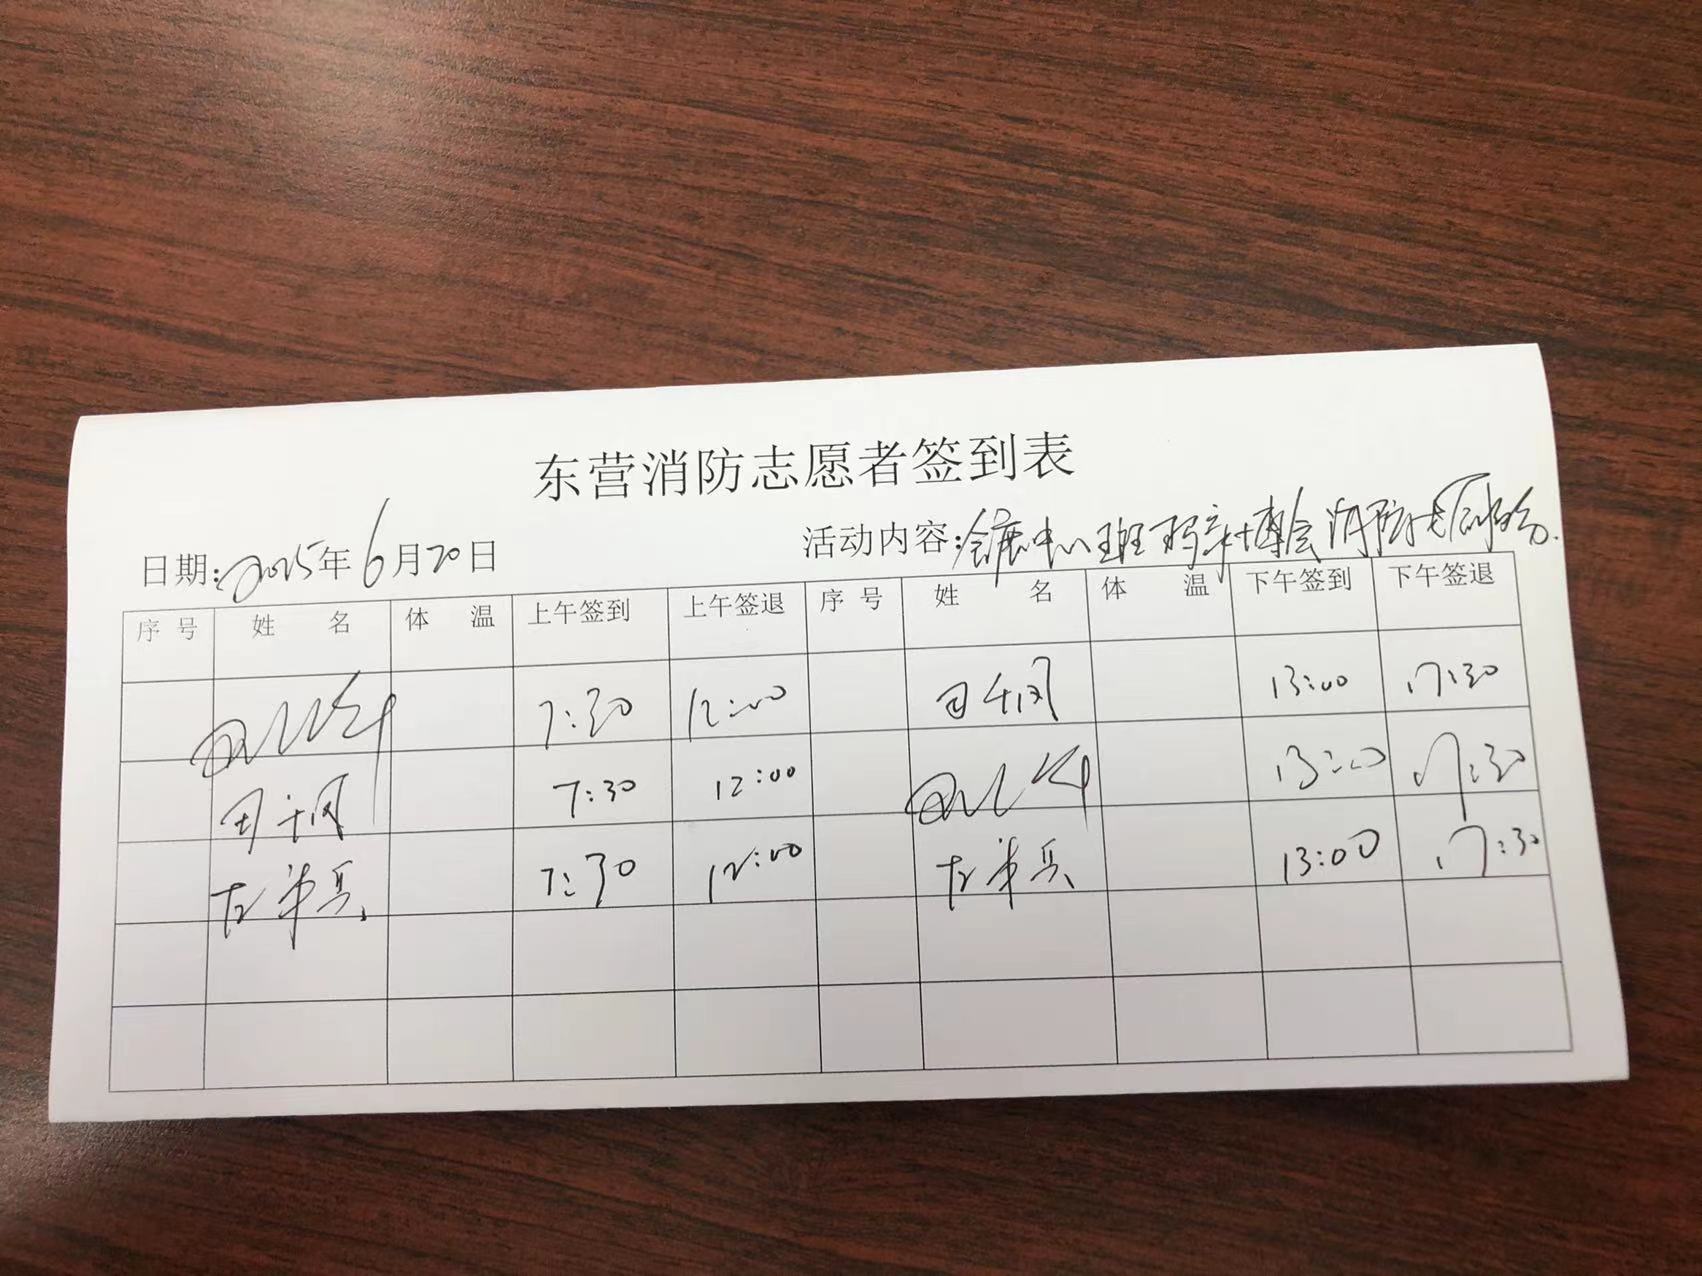 东营消防志愿者签到表
日期:2025年6月20日 活动内容:会展中心 博会消防志愿服务.
序号 姓名 体温 上午签到 上午签退 序号 姓名 体温 下午签到 下午签退
7:30 12:00 田千凤 13:00 17:30
田千凤 7:30 12:00 13:00 17:30
7:30 12:00 13:00 17:30